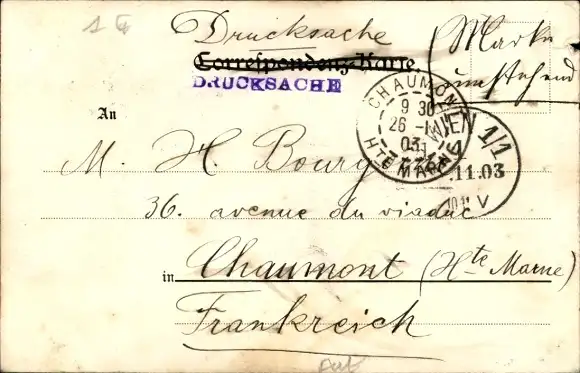 Drucksache
Correspondenz-Karte.
DRUCKSACHE
Marke
umstehend
An
CHAUMONT
9 30
26 -
03
HTE MARNE
WIEN 1/1
.11.03
V
M. H. Bourg
36. avenue du viaduc
in Chaumont (Hte Marne)
Frankreich